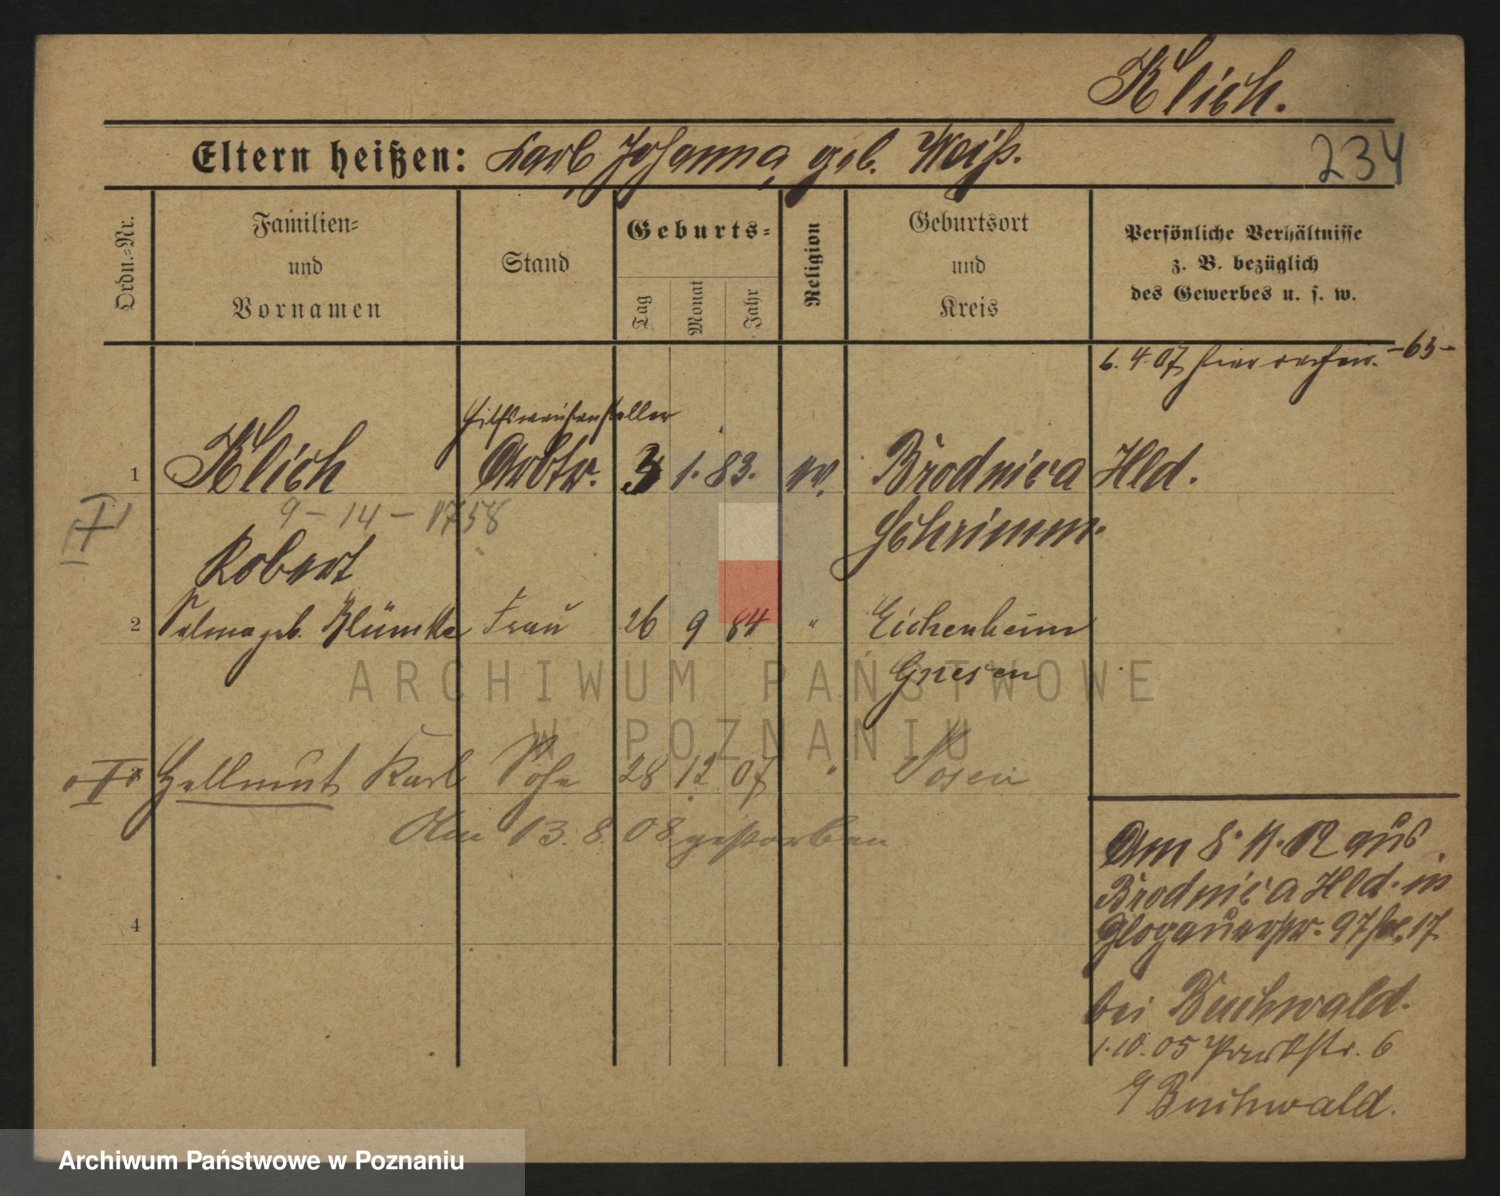 Klich.
Eltern heißen: Karl, Johanna, geb. Weiß.
234
Ordn.-Nr.
Familien- und Vornamen
Stand
Geburts-
Tag
Monat
Jahr
Religion
Geburtsort und Kreis
Persönliche Verhältnisse
z. B. bezüglich
des Gewerbes u. s. w.
6. 4. 07 hier -63-
Hilfsweichensteller
1 Klich Arbtr. 3 1. 83. ev. Brodnica Hld.
9 - 14 - 1758 Schrimm.
Robert
2 Selma geb. Blümke Frau 26 9 84 " Eichenheim
Gnesen
Hellmut Karl Sohn 28 12 07 " Posen
Am 13. 8. 08 gestorben
4
Am 8. 11. 02 aus
Brodnica Hld. in
Glogauerstr. 97 17
bei Buchwald.
1. 10. 05 Parkstr. 6
b/ Buchwald.
ARCHIWUM PAŃSTWOWE
W POZNANIU
Archiwum Państwowe w Poznaniu